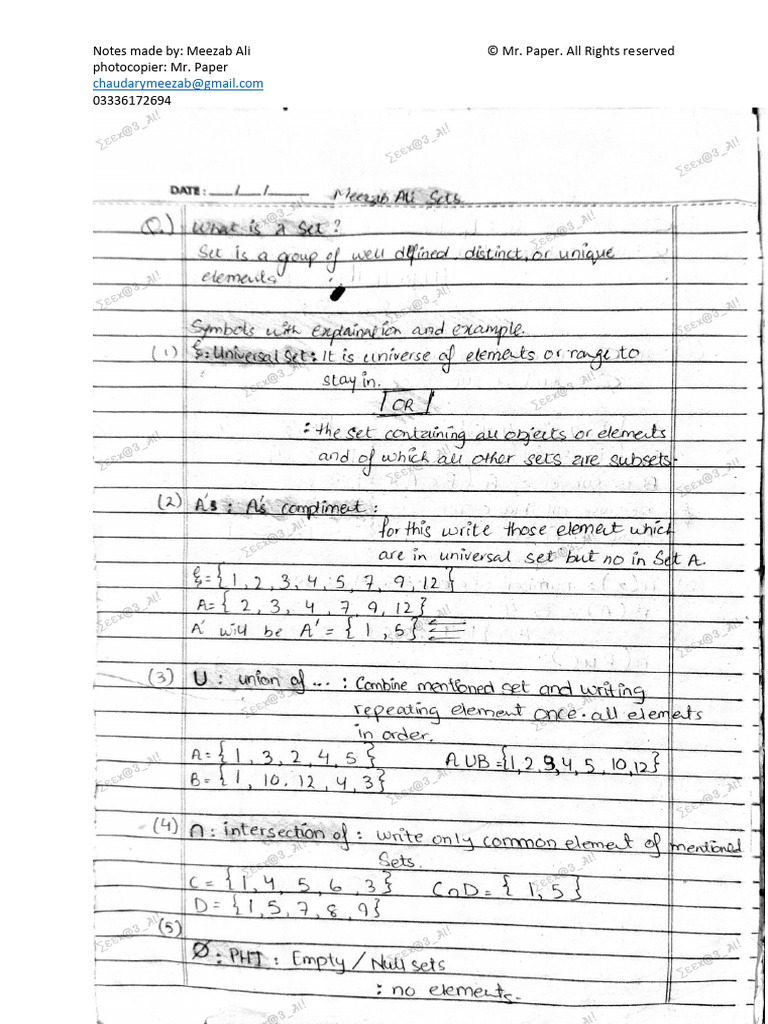 Notes made by: Meezab Ali
© Mr. Paper. All Rights reserved
photocopier: Mr. Paper
chaudarymeezab@gmail.com
03336172694
DATE: __/__/____ Meezab Ali Sets
Q.) What is a Set?
Set is a group of well defined, distinct, or unique
elements
Symbols with explaination and example.
(1) ξ: Universal Set: It is universe of elements or range to
stay in.
OR
: the set containing all objects or elements
and of which all other sets are subsets.
(2) A's: A's compliment:
for this write those element which
are in universal set but no in Set A.
ξ={1,2,3,4,5,7,9,12}
A={2,3,4,7,9,12}
A' will be A'={1,5}
(3) U: union of ... : Combine mentioned set and writing
repeating element once. all elements
in order.
A={1,3,2,4,5} AUB={1,2,3,4,5,10,12}
B={1,10,12,4,3}
(4) ∩: intersection of: write only common element of mentioned
Sets.
C={1,4,5,6,3} C∩D={1,5}
D={1,5,7,8,9}
(5)
Ø: PHI: Empty/Null sets
: no elements.